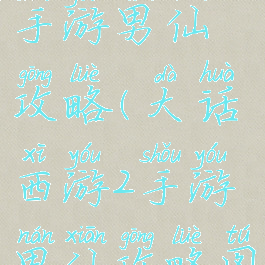 手游男仙
gōng lüè dà huà
攻略(大话
xī yóu shǒu yóu
西游2手游
nán xiān gōng lüè tú
男仙攻略图